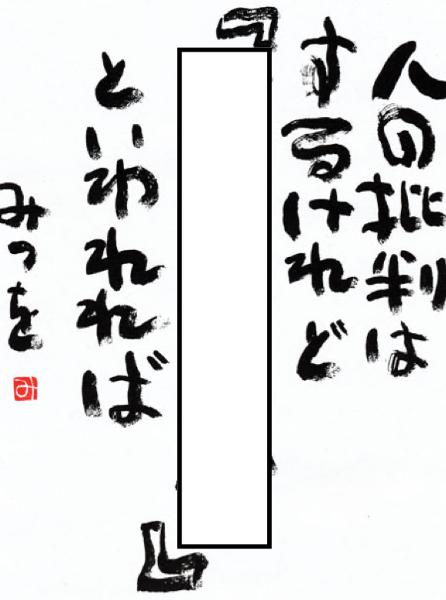 人の批判は
するけれど
『
』
といわれれば
みつを
み